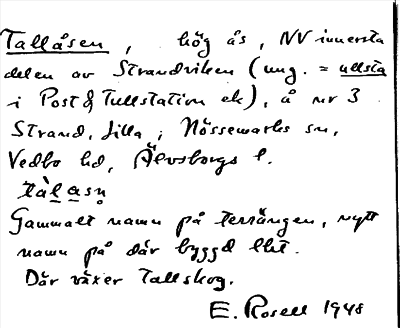 Tallåsen, hög ås, NV innersta
delen av Strandviken (ung. = ullsta
i Post & Tullstation ek), å nr 3
Strand, lilla, Nössemarks sn,
Vedbo hd, Älvsborgs l.
tàlasn̥
Gammalt namn på terrängen, nytt
namn på där byggd lht.
Där växer Tallskog.
E. Rosell 1948